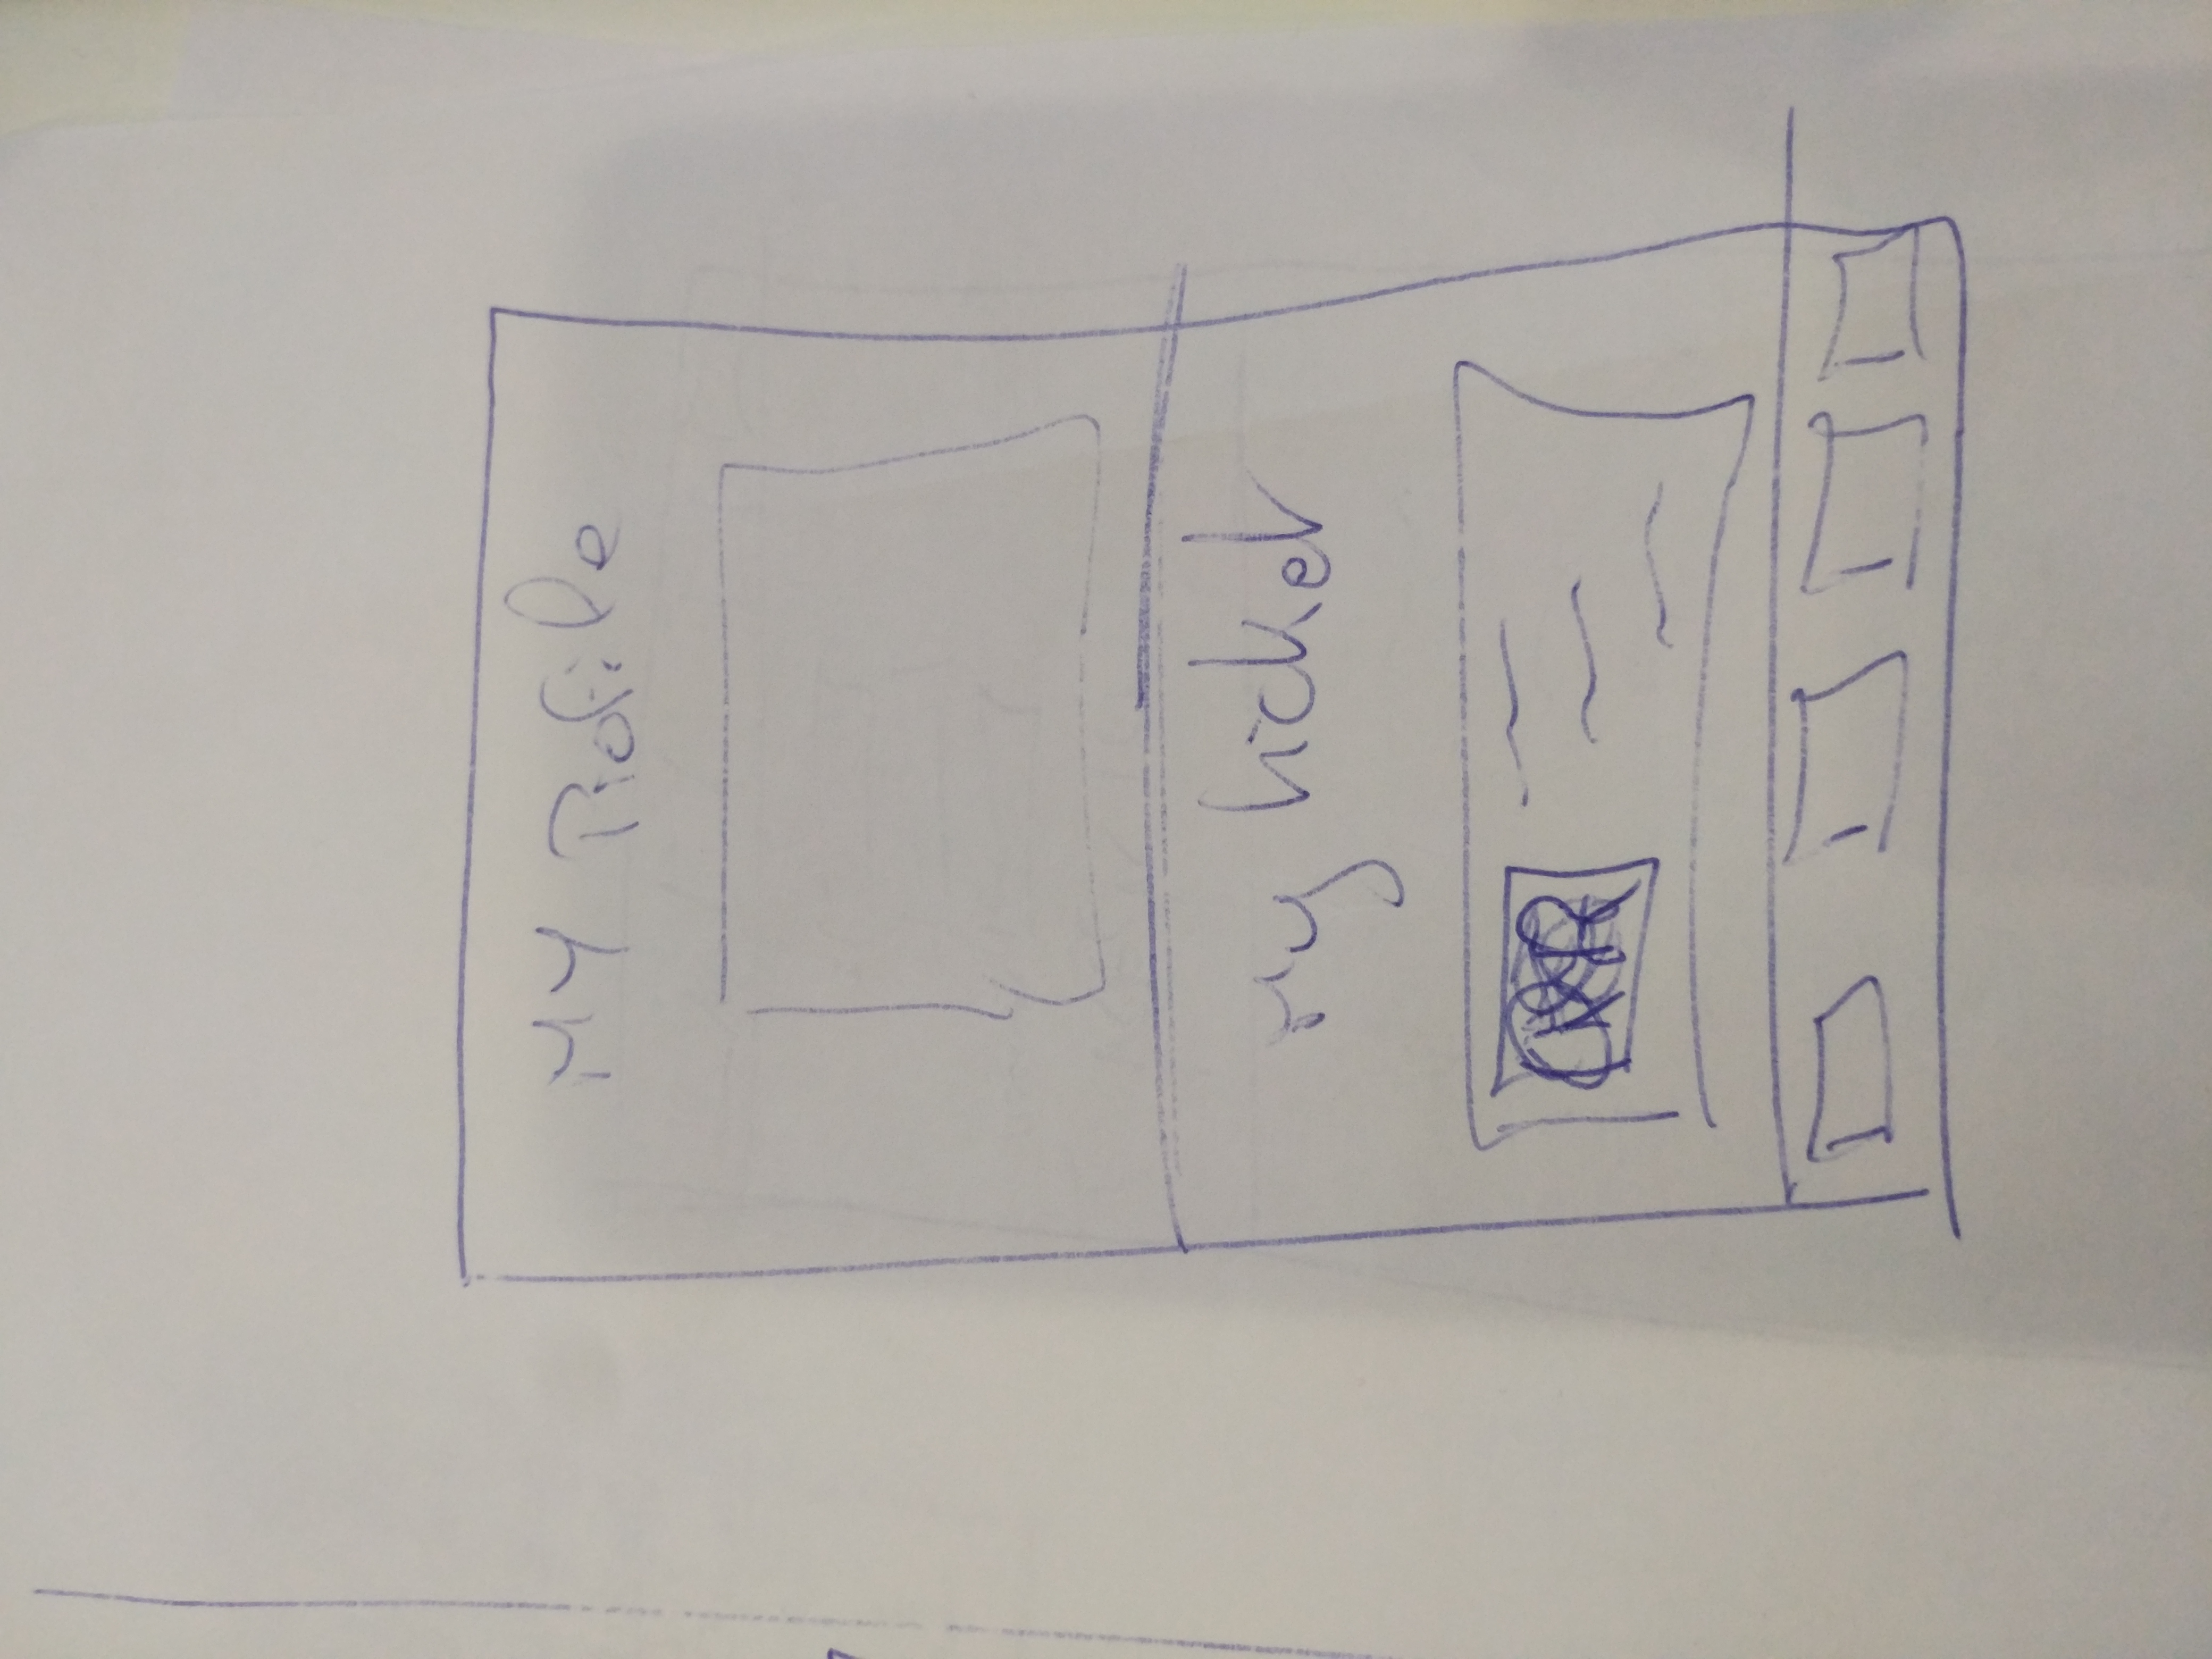 MY Profile
my ticket
QR